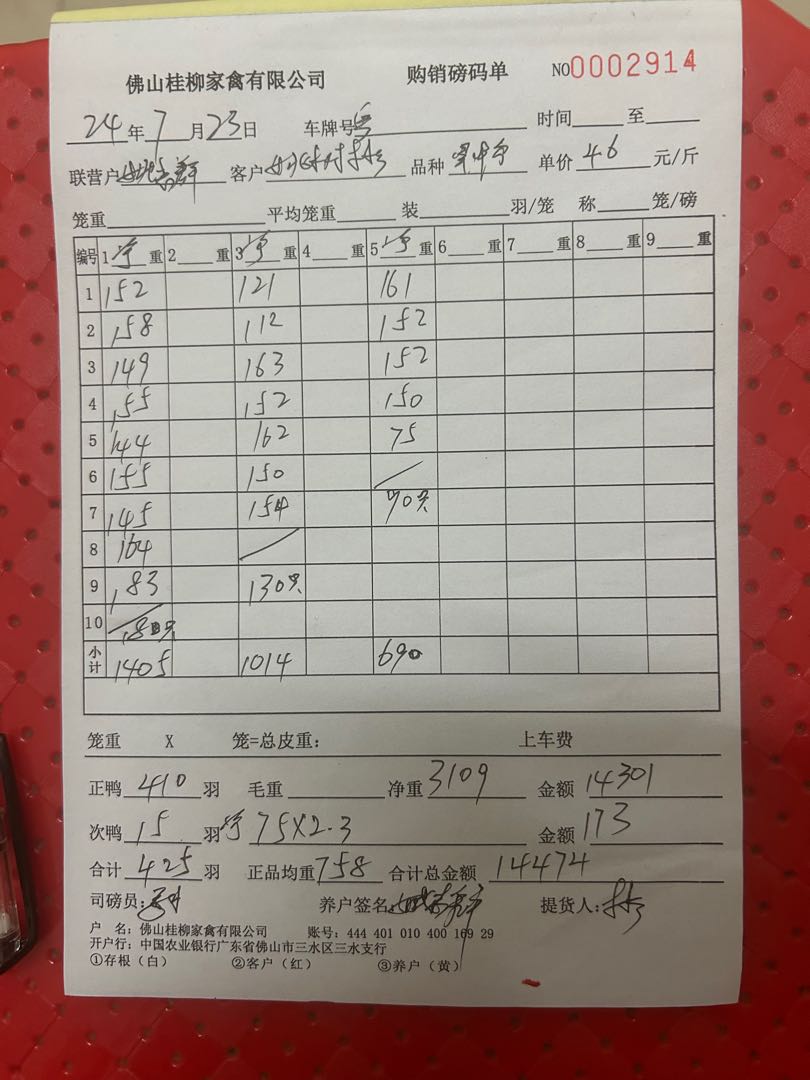 佛山桂柳家禽有限公司 购销磅码单 NO0002914
24年7月23日 车牌号粤 时间 至
联营户 客户 品种 单价4.6元/斤
笼重 平均笼重 装 羽/笼 称 笼/磅
编号 1净重 2重 3净重 4重 5净重 6重 7重 8重 9重
1 152 121 161
2 158 112 152
3 149 163 152
4 155 152 150
5 144 162 75
6 155 150
7 145 154 70只
8 164
9 183 130只
10 180只
小计 1405 1014 690
笼重 X 笼=总皮重: 上车费
正鸭410羽 毛重 净重3109 金额14301
次鸭15羽 净75X2.3 金额173
合计425羽 正品均重758 合计总金额14474
司磅员: 养户签名: 提货人:
户 名:佛山桂柳家禽有限公司 账号:444 401 010 400 169 29
开户行:中国农业银行广东省佛山市三水区三水支行
①存根(白) ②客户(红) ③养户(黄)